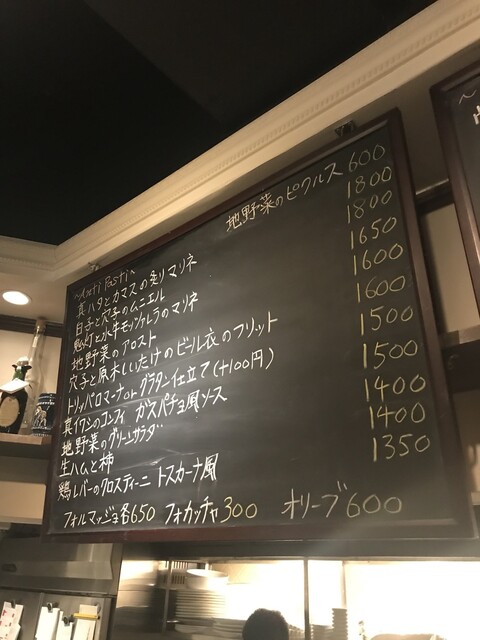 ~Anti Pasti~ 地野菜のピクルス 600
真ハタとカマスの炙りマリネ 1800
白子と穴子のムニエル 1800
と水牛モッツァレラのマリネ 1650
地野菜のアロスト 1600
穴子と原木しいたけのビール衣のフリット 1600
トリッパロマーナor グラタン仕立て(+100円) 1500
真イワシのコンフィ ガスパチョ風ソース 1500
地野菜のグリーンサラダ 1400
生ハムと柿 1400
鶏レバーのクロスティーニ トスカーナ風 1350
フォルマッジョ各650 フォカッチャ300 オリーブ600